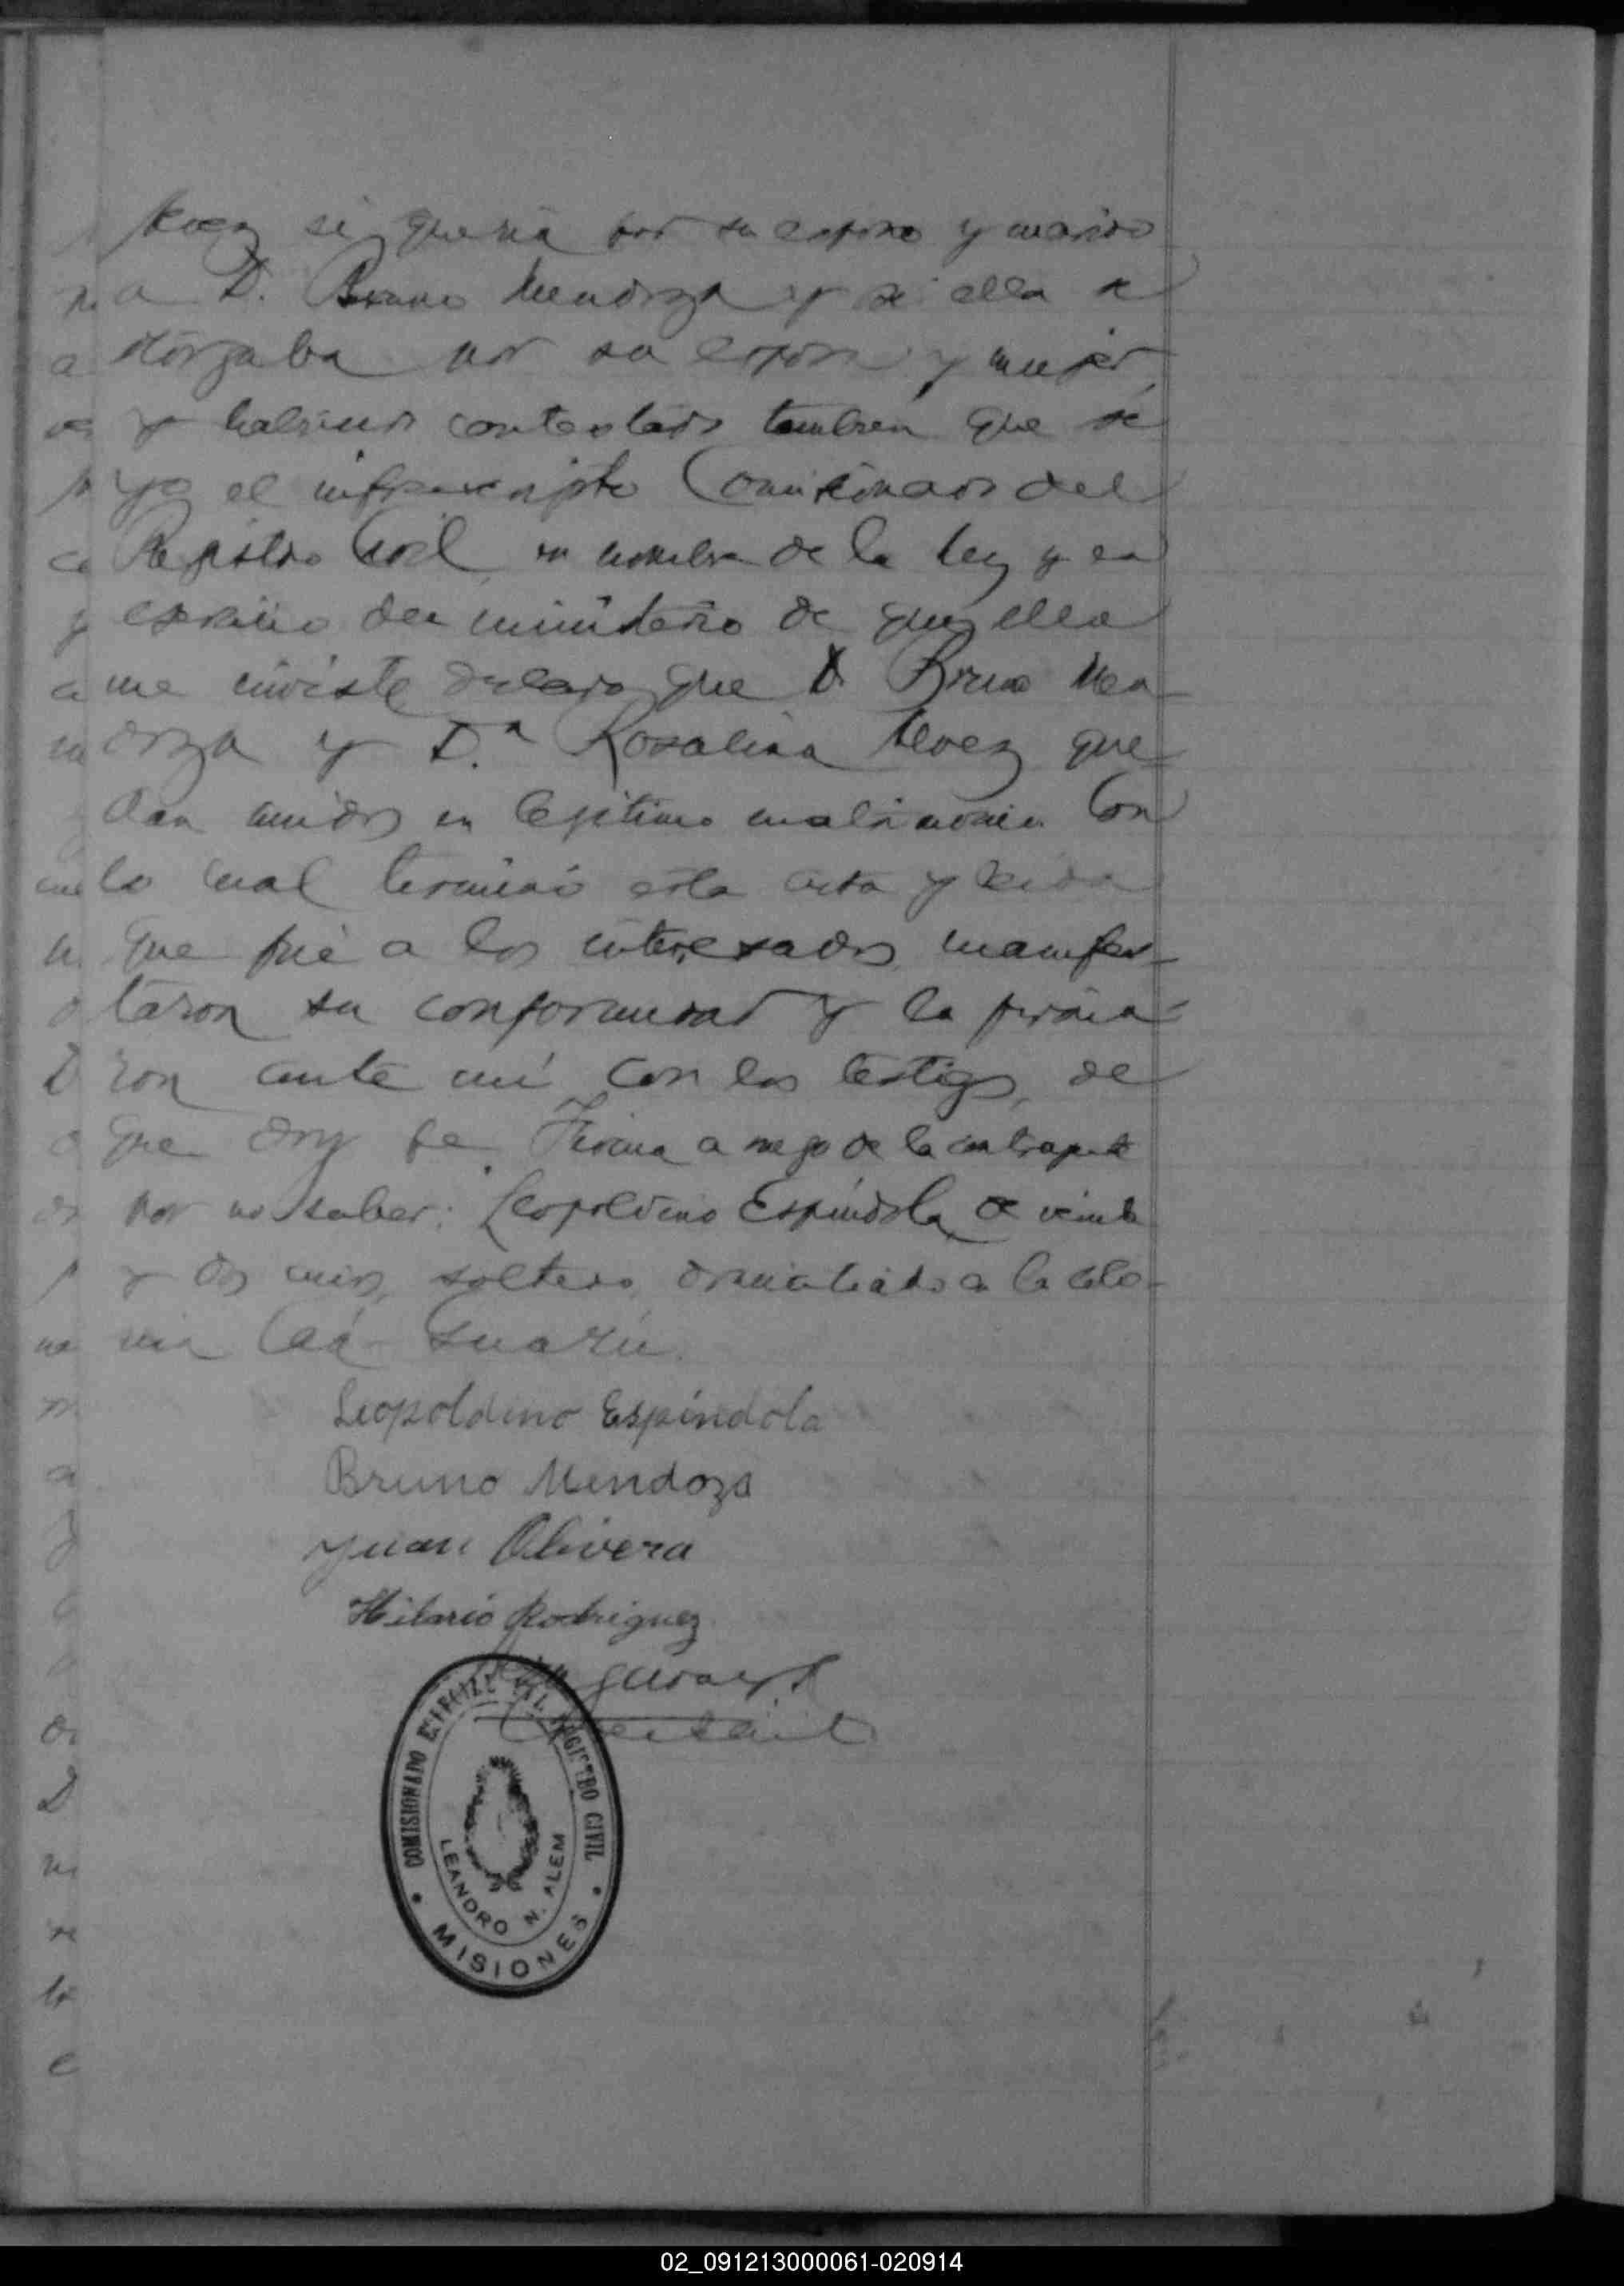 Alvez si queria por su esposo y marido
a D. Bruno Mendoza y si ella se
otorgaba por su esposa y mujer,
y habiendo contestado tambien que si
yo el infrascripto Comisionado del
Registro Civil, en nombre de la ley y en
ejercicio del ministerio de que ella
me inviste declaro que D. Bruno Men-
doza y D.ª Rosalina Alvez que-
dan unidos en legitimo matrimonio Con
lo cual terminó esta acta y leida
que fué a los interesados, manifes-
taron su conformidad y la firma-
ron ante mi con los testigos, de
que doy fe. Firma a ruego de la contrayente
por no saber: Leopoldino Espindola, de veinte
y dos años, soltero, domiciliado en la colo-
nia Caá-Guazú.
Leopoldino Espíndola
Bruno Mendoza
Juan Olivera
Hilario Rodriguez
COMISIONADO ESPECIAL DEL REGISTRO CIVIL
LEANDRO N. ALEM
MISIONES
02_091213000061-020914